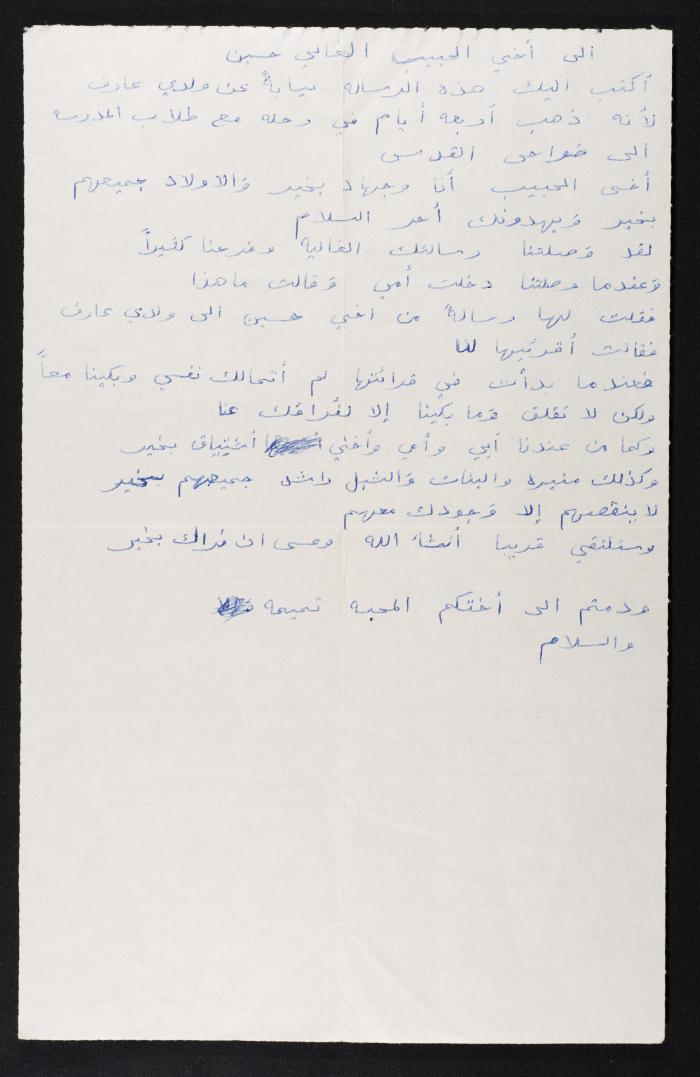 الى أخي الحبيب الغالي حسين
أكتب اليك هذه الرساله نيابةً عن ولدي عارف
لأنه ذهب أربعه أيام في رحله مع طلاب المدرسه
الى ضواحي القدس
أخي الحبيب أنا وجهاد بخير والاولاد جميعهم
بخير ويهدونك أحر السلام
لقد وصلتنا رسالتك الغاليه وفرحنا كثيراً
وعندما وصلتنا دخلت أمي وقالت ماهذا
فقلت لها رسالةً من اخي حسين الى ولدي عارف
فقالت أقرئيها لنا
فعندما بدأت في قرائتها لم أتمالك نفسي وبكينا معاً
ولكن لا تقلق وما بكينا إلا لفراقك عنا
وكما من عندنا أبي وأمي وأختي أشتياق بخير
وكذلك منيره والبنات والشبل راشد جميعهم بخير
لا ينقصهم إلا وجودك معهم
وسنلتقي قريبا أنشاء الله وعسى ان نراك بخير
ودمتم الى أختكم المحبه تميمه
والسلام